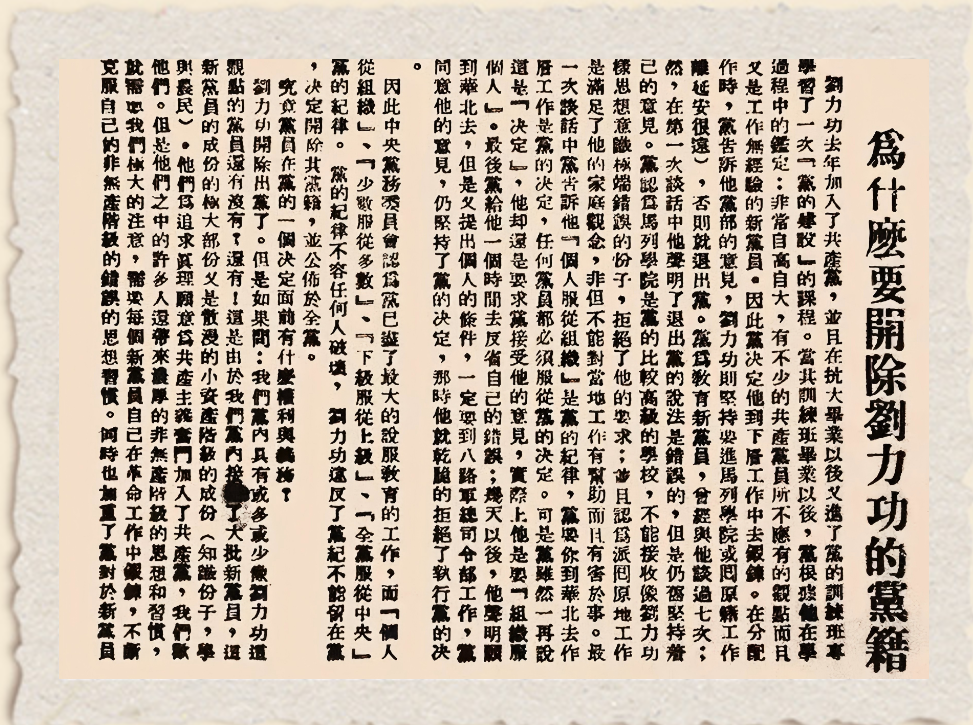 為什麼要開除劉力功的黨籍
劉力功去年加入了共產黨，並且在抗大畢業以後又進了黨的訓練班專
學習了一次『黨的建設』的課程。當其訓練班畢業以後，黨根據他在學
過程中的鑑定：非常自高自大，有不少的共產黨員所不應有的觀點而且
又是工作無經驗的新黨員。因此黨決定他到下層工作中去鍛鍊。在分配
作時，黨告訴他黨部的意見，劉力功則堅持要進馬列學院或囘原籍工作
離延安很遠），否則就退出黨。黨為教育新黨員，曾經與他談過七次；
然，在第一次談話中他聲明了退出黨的說法是錯誤的，但是仍舊堅持着
己的意見。黨認為馬列學院是黨的比較高級的學校，不能接收像劉力功
樣思想意識極端錯誤的份子，拒絕了他的要求；並且認為派囘原地工作
是滿足了他的家庭觀念，非但不能對當地工作有幫助而且有害於事。最
一次談話中黨告訴他『個人服從組織』是黨的紀律，黨要你到華北去作
層工作是黨的决定，任何黨員都必須服從黨的决定。可是黨雖然一再說
這是『决定』，他却還是要求黨接受他的意見，實際上他是要『組織服
個人』。最後黨給他一個時間去反省自己的錯誤；幾天以後，他聲明願
到華北去，但是又提出個人的條件，一定要到八路軍總司令部工作，黨
同意他的意見，仍堅持了黨的决定，那時他就乾脆的拒絕了執行黨的决
。
因此中央黨務委員會認為黨已盡了最大的說服教育的工作，而『個人
從組織』、『少數服從多數』、『下級服從上級』、『全黨服從中央』
黨的紀律。黨的紀律不容任何人破壞，劉力功違反了黨紀不能留在黨
，决定開除其黨籍，並公佈於全黨。
究竟黨員在黨的一個决定面前有什麼權利與義務？
劉力功開除出黨了。但是如果問：我們黨內具有或多或少像劉力功這
觀點的黨員還有沒有？還有！這是由於我們黨內接 了大批新黨員，這
新黨員的成份的極大部份又是散漫的小資產階級的成份（知識份子，學
與農民）。他們為追求眞理願意為共產主義奮鬥加入了共產黨，我們歡
他們。但是他們之中的許多人還帶來濃厚的非無產階級的思想和習慣，
就需要我們極大的注意，需要每個新黨員自己在革命工作中鍛鍊，不斷
克服自己的非無產階級的錯誤的思想習慣。同時也加重了黨對於新黨員